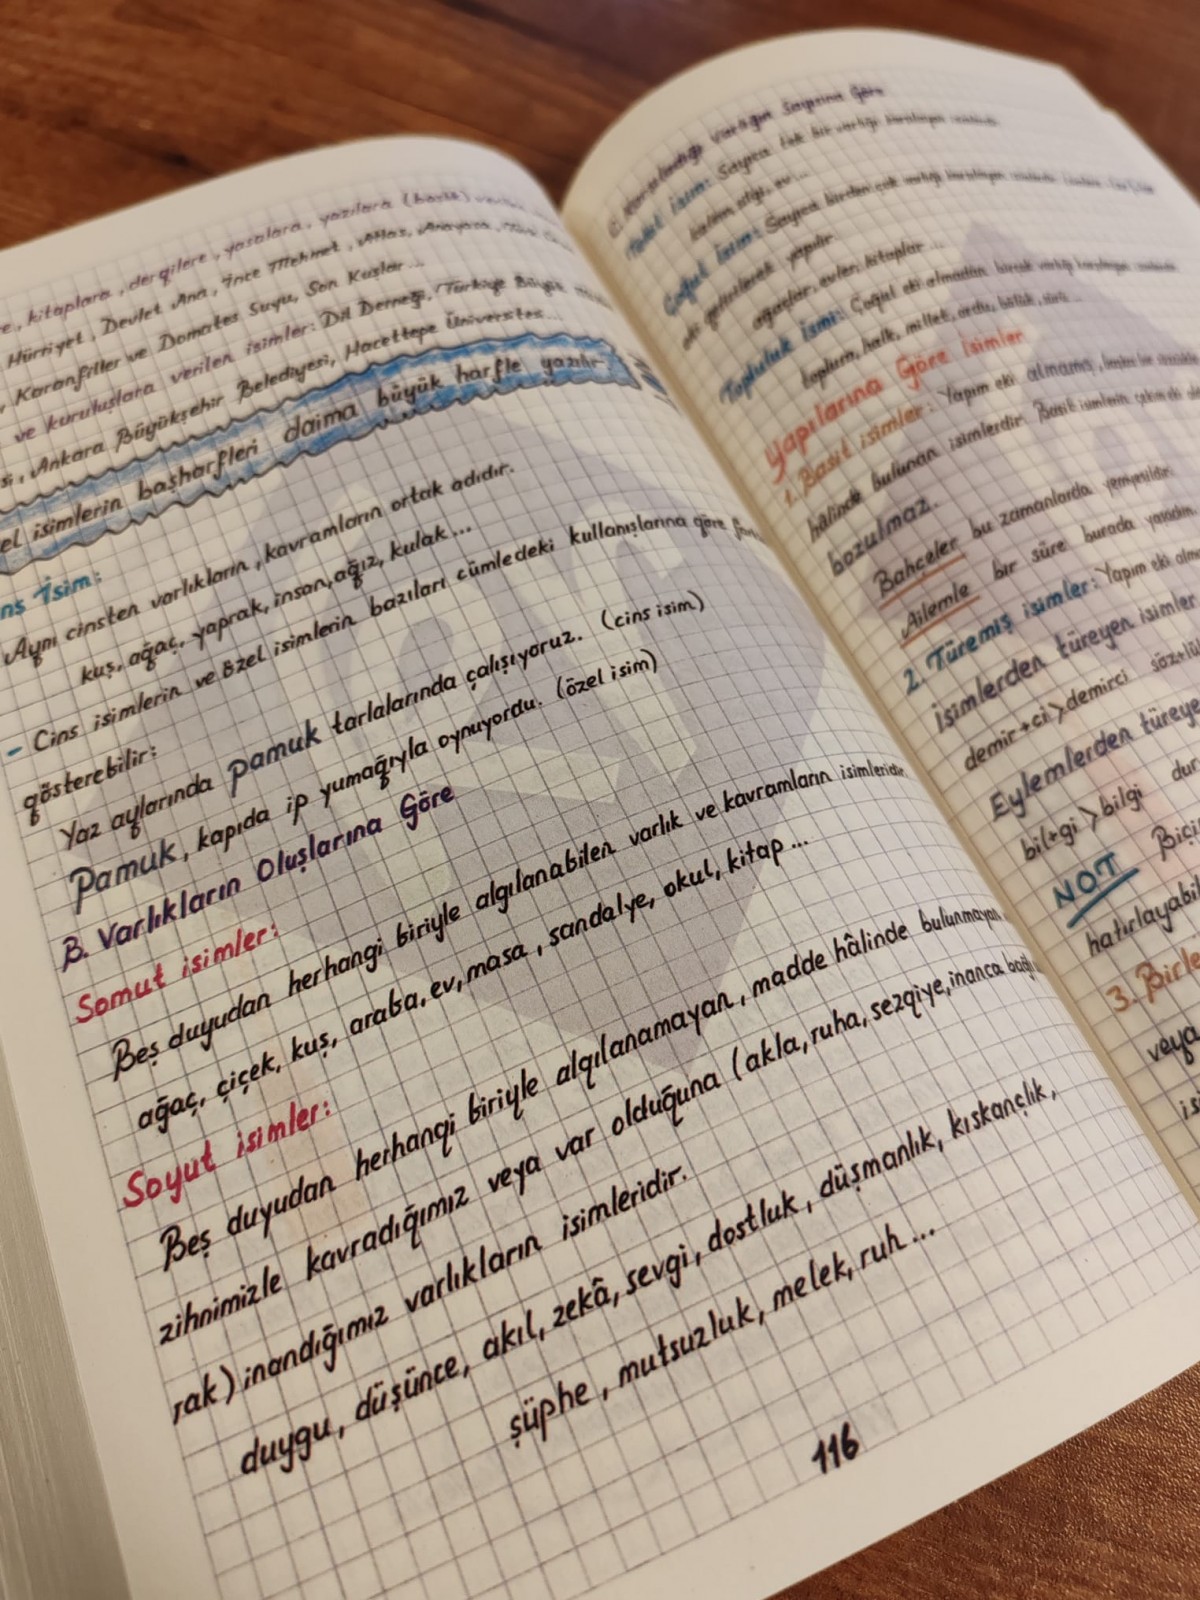 kitaplara, dergilere, yasalara, yazılara
Hürriyet, Devlet Ana, İnce Mehmet, Atlas, Anayasa,
Karanfiller ve Domates Suyu, Son Kuşlar...
ve kuruluşlara verilen isimler: Dil Derneği, Türkiye Büyük
si, Ankara Büyükşehir Belediyesi, Hacettepe Üniversites...
el isimlerin başharfleri daima büyük harfle yazılır.
ns İsim:
Aynı cinsten varlıkların, kavramların ortak adıdır.
kuş, ağaç, yaprak, insan, ağız, kulak...
- Cins isimlerin ve özel isimlerin bazıları cümledeki kullanışlarına göre
gösterebilir:
Yaz aylarında pamuk tarlalarında çalışıyoruz. (cins isim)
Pamuk, kapıda ip yumağıyla oynuyordu. (özel isim)
B. Varlıkların Oluşlarına Göre
Somut isimler:
Beş duyudan herhangi biriyle algılanabilen varlık ve kavramların isimleridir.
ağaç, çiçek, kuş, araba, ev, masa, sandalye, okul, kitap...
Soyut isimler:
Beş duyudan herhangi biriyle algılanamayan, madde hâlinde bulunmayan,
zihnimizle kavradığımız veya var olduğuna (akla, ruha, sezgiye, inanca bağlı
rak) inandığımız varlıkların isimleridir.
duygu, düşünce, akıl, zekâ, sevgi, dostluk, düşmanlık, kıskançlık,
şüphe, mutsuzluk, melek, ruh...
116
C. Karşıladığı Varlığın Sayısına Göre
Tekil İsim: Sayıca tek bir varlığı karşılayan
kalem, silgi, ev...
Çoğul İsim: Sayıca birden çok varlığı karşılayan
eki getirilerek yapılır.
ağaçlar, evler, kitaplar...
Topluluk İsmi: Çoğul eki almadan birçok varlığı karşılayan
toplum, halk, millet, ordu, bölük, sürü...
Yapılarına Göre İsimler
1. Basit isimler: Yapım eki almamış,
hâlinde bulunan isimlerdir. Basit isimlerin çekim eki
bozulmaz.
Bahçeler bu zamanlarda yemyeşildir.
Ailemle bir süre burada yaşadım.
2. Türemiş isimler: Yapım eki
İsimlerden türeyen isimler
demir+ci>demirci
Eylemlerden türeye
bil+gi>bilgi
NOT Biçi
hatırlayabil
3. Birle
veya
isi